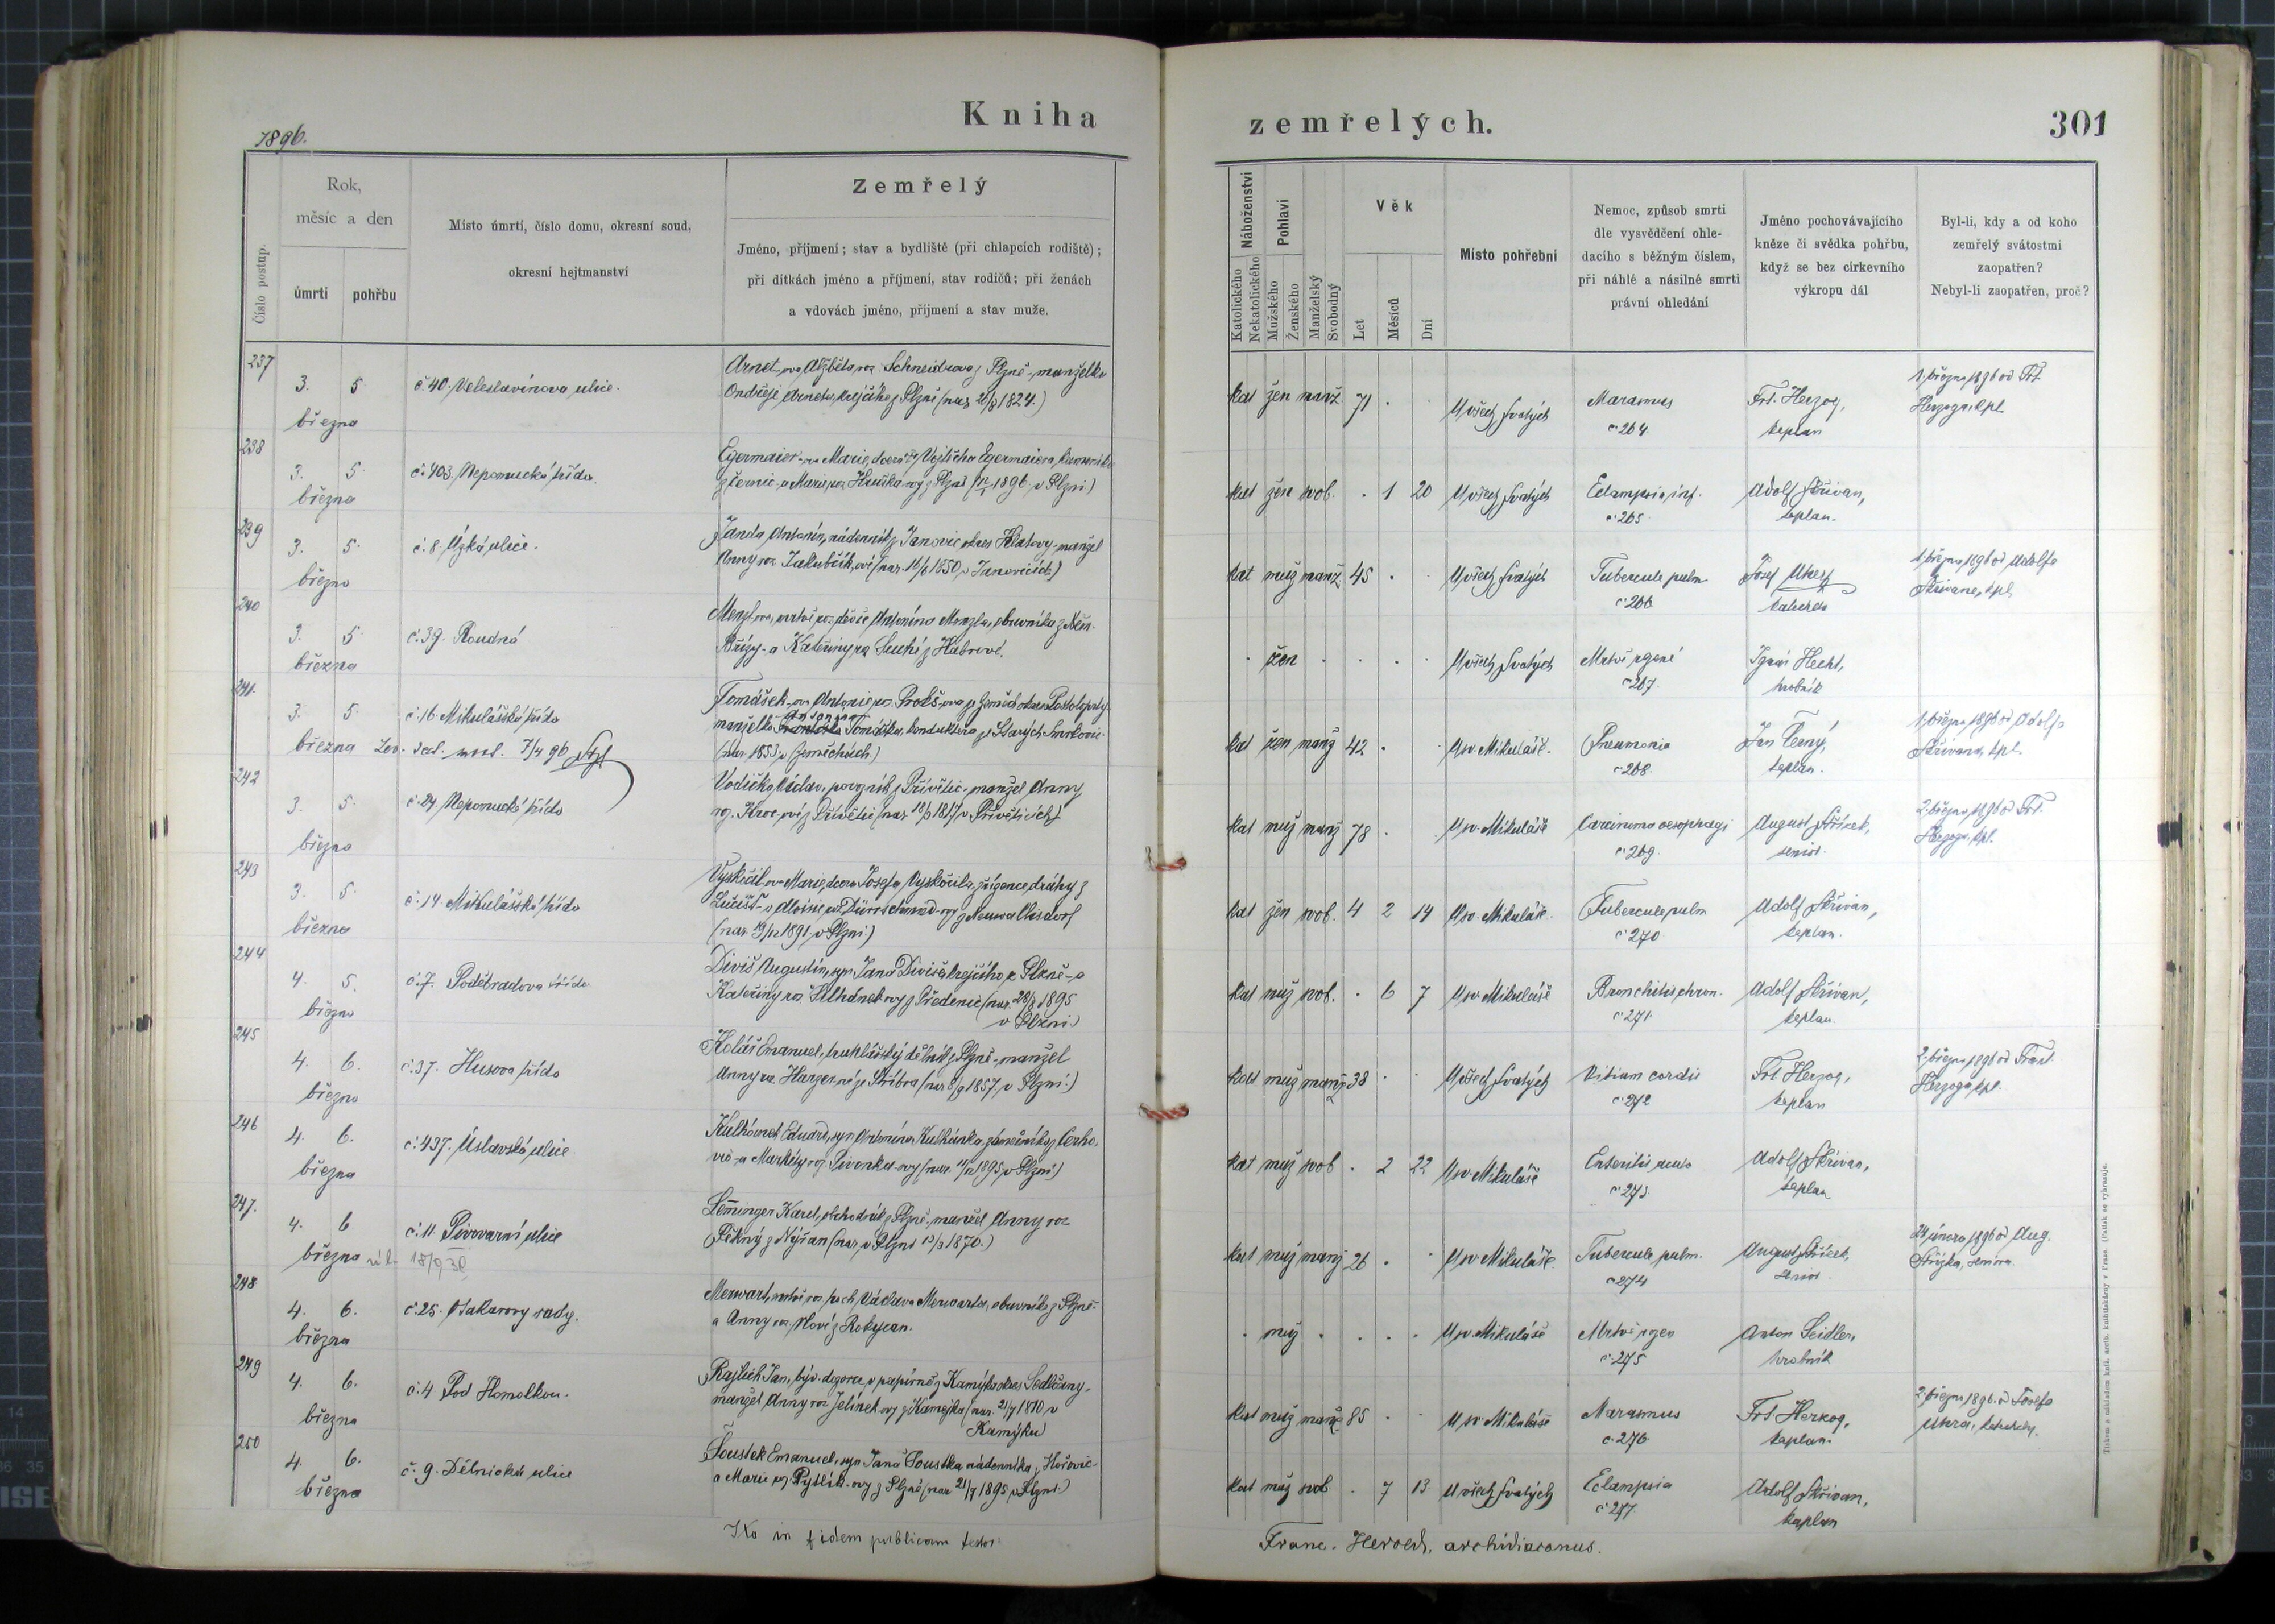 Kniha
zemřelých.
301
1896.
Číslo postup.
Rok,
měsíc a den
úmrtí
pohřbu
Místo úmrtí, číslo domu, okresní soud,
okresní hejtmanství
Zemřelý
Jméno, příjmení; stav a bydliště (při chlapcích rodiště);
při dítkách jméno a příjmení, stav rodičů; při ženách
a vdovách jméno, příjmení a stav muže.
Náboženství
Katolického
Nekatolického
Pohlaví
Mužského
Ženského
Manželský
Svobodný
Věk
Let
Měsíců
Dní
Místo pohřební
Nemoc, způsob smrti
dle vysvědčení ohle-
dacího s běžným číslem,
při náhlé a násilné smrti
právní ohledání
Jméno pochovávajícího
kněze či svědka pohřbu,
když se bez církevního
výkropu dál
Byl-li, kdy a od koho
zemřelý svátostmi
zaopatřen?
Nebyl-li zaopatřen, proč?
237
3. 5
března
č. 40. Veleslavínova ulice.
Arnet-ova Alžběta roz. Schneidrova z Plzně-manželka
Ondřeje Arneta, krejčího z Plzně (nar. 1824.)
kat žen manž 71 . .
U všech Svatých
Marasmus
č. 264
Frt. Herzog,
kaplan
1. března 1896 od Frt.
Herzoga, kpl.
238
3. 5.
března
č. 403. Nepomucká třída.
Egermaier-ova Marie, dcera Vojtěcha Egermaiera, kameníka
z Černic-a Marie roz. Huška-ový z Plzně (1896 v Plzni)
kat žen svob. . 1 20
U všech Svatých
Eclampsia inf.
č. 265
Adolf Skřivan,
kaplan.
239
3. 5.
března
č. 8. Úzká ulice.
Janda Antonín, nádenník z Janovic okres Klatovy-manžel
Anny roz. Jakubčík-ové (nar. 1850 v Janovicích)
kat muž manž 45 . .
U všech Svatých
Tubercule pulm
č. 266
Josef
katecheta
1. března 1896 od Adolfa
Skřivana, kpl.
240
3. 5.
března
č. 39. Roudná
Menzl-ova, mrtvě roz. děvče Antonína Menzla, obuvníka z
Břízy-a Kateřiny roz. Suché z Habrové.
. žen . . . .
U všech Svatých
Mrtvě zrozené
č. 267.
Ignác Hecht,
hrobník
241.
3. 5.
března
č. 16. Mikulášská třída
7/4 96
Tomášek-ova Antonie roz. Prokš-ova ze Zemčch okres Postoloprty.
manželka Tomáška, konduktera ze Starých Smrkovic
(nar. 1853 v Zemčchách.)
kat žen manž 42 . .
U sv. Mikuláše.
Pneumonia
č. 268.
Jan Černý,
kaplan.
1. března 1896 od Adolfa
Skřivana, kpl.
242
3. 5.
března
č. 24. Nepomucká třída
Vodička Václav, povozník z Přívětic-manžel Anny
roz. Kroc-ové z Přívětic (nar. 1817 v Přívěticích)
kat muž manž 78 .
U sv. Mikuláše
Carcinoma oesophagi
č. 269.
August Střížek,
senior.
2. března 1896 od Frt.
Herzoga, kpl.
243
3. 5.
března
č. 14. Mikulášská třída
Vyskočil-ova Marie, dcera Josefa Vyskočila, zřízence dráhy z
Lučišť-a Aloisie roz. Dürrschmied-ový z Neuwallisdorf
(nar. 19/12 1891 v Plzni)
kat žen svob. 4 2 14
U sv. Mikuláše.
Tubercule pulm
č. 270
Adolf Skřivan,
kaplan.
244
4. 5.
března
č. 7. Poděbradova třída
Diviš Augustin, syn Jana Diviše, krejčího z Plzně-a
Kateřiny roz. Kulhánek-ový z Předenic (nar. 28/8 1895
v Plzni.)
kat muž svob. . 6 7
U sv. Mikuláše
Bronchitis chron.
č. 271.
Adolf Skřivan,
kaplan.
245
4. 6.
března
č. 37. Husova třída
Kolář Emanuel, truhlářský dělník z Plzně-manžel
Anny roz. Harzer-né ze Stříbra (nar. 8/9 1857 v Plzni.)
kat muž manž 38 . .
U všech Svatých
Vitium cordis
č. 272
Frt. Herzog,
kaplan
2. března 1896 od Frant.
Herzoga, kpl.
246
4. 6.
března
č. 437. Úslavská ulice
Kulhánek Eduard, syn Antonína Kulhánka, zámečníka z Cerho-
vic-a Markéty roz. Pivonka-ový (nar. 11/12 1895 v Plzni.)
kat muž svob . 2 22
U sv. Mikuláše
Enteritis acuta
č. 273.
Adolf Skřivan,
kaplan
247.
4. 6
března
č. 11. Pivovarní ulice
Leminger Karel, obchodník z Plzně-manžel Anny roz.
Pěkný z Nýřan (nar. v Plzni 1870.)
kat muž manž 26 . .
U sv. Mikuláše.
Tubercule pulm.
č. 274
August Střížek,
senior.
24. února 1896 od Aug.
Střížka, seniora.
248
4. 6.
března
č. 25. Otakarovy sady.
Merwart, mrtvě roz. hoch Václava Merwarta, obuvníka z Plzně-
a Anny roz. Nové z Rokycan.
. muž . . . .
U sv. Mikuláše
Mrtvě zrozen
č. 275
Anton Seidler,
hrobník
249
4. 6.
března
č. 4 Pod Homolkou.
Rajlich Jan, býv. dozorce v papírně z Kamýka okres Sedlčany-
manžel Anny roz. Jelínek-ový z Kamejka (nar. 21/7 1810 v
Kamýku)
kat muž manž 85 . .
U sv. Mikuláše
Marasmus
č. 276
Frt. Herzog,
kaplan.
2. března 1896. od Josefa
katechety.
250
4. 6.
března
č. 9. Dělnická ulice
Soustek Emanuel, syn Jana Soustka nádenníka z Hořovic-
a Marie roz. Pytlík-ový z Plzně (nar. 21/7 1895 v Plzni.)
kat muž svob . 7 13
U všech Svatých
Eclampsia
č. 277
Adolf Skřivan,
kaplan
Ita in fidem publicam testor:
Franc. Herold, archidiaconus.